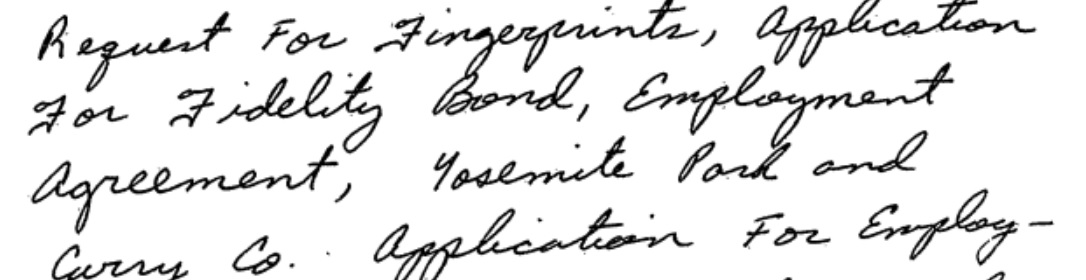 Request For Fingerprints, Application
For Fidelity Bond, Employment
Agreement, Yosemite Park and
Curry Co. Application For Employ-